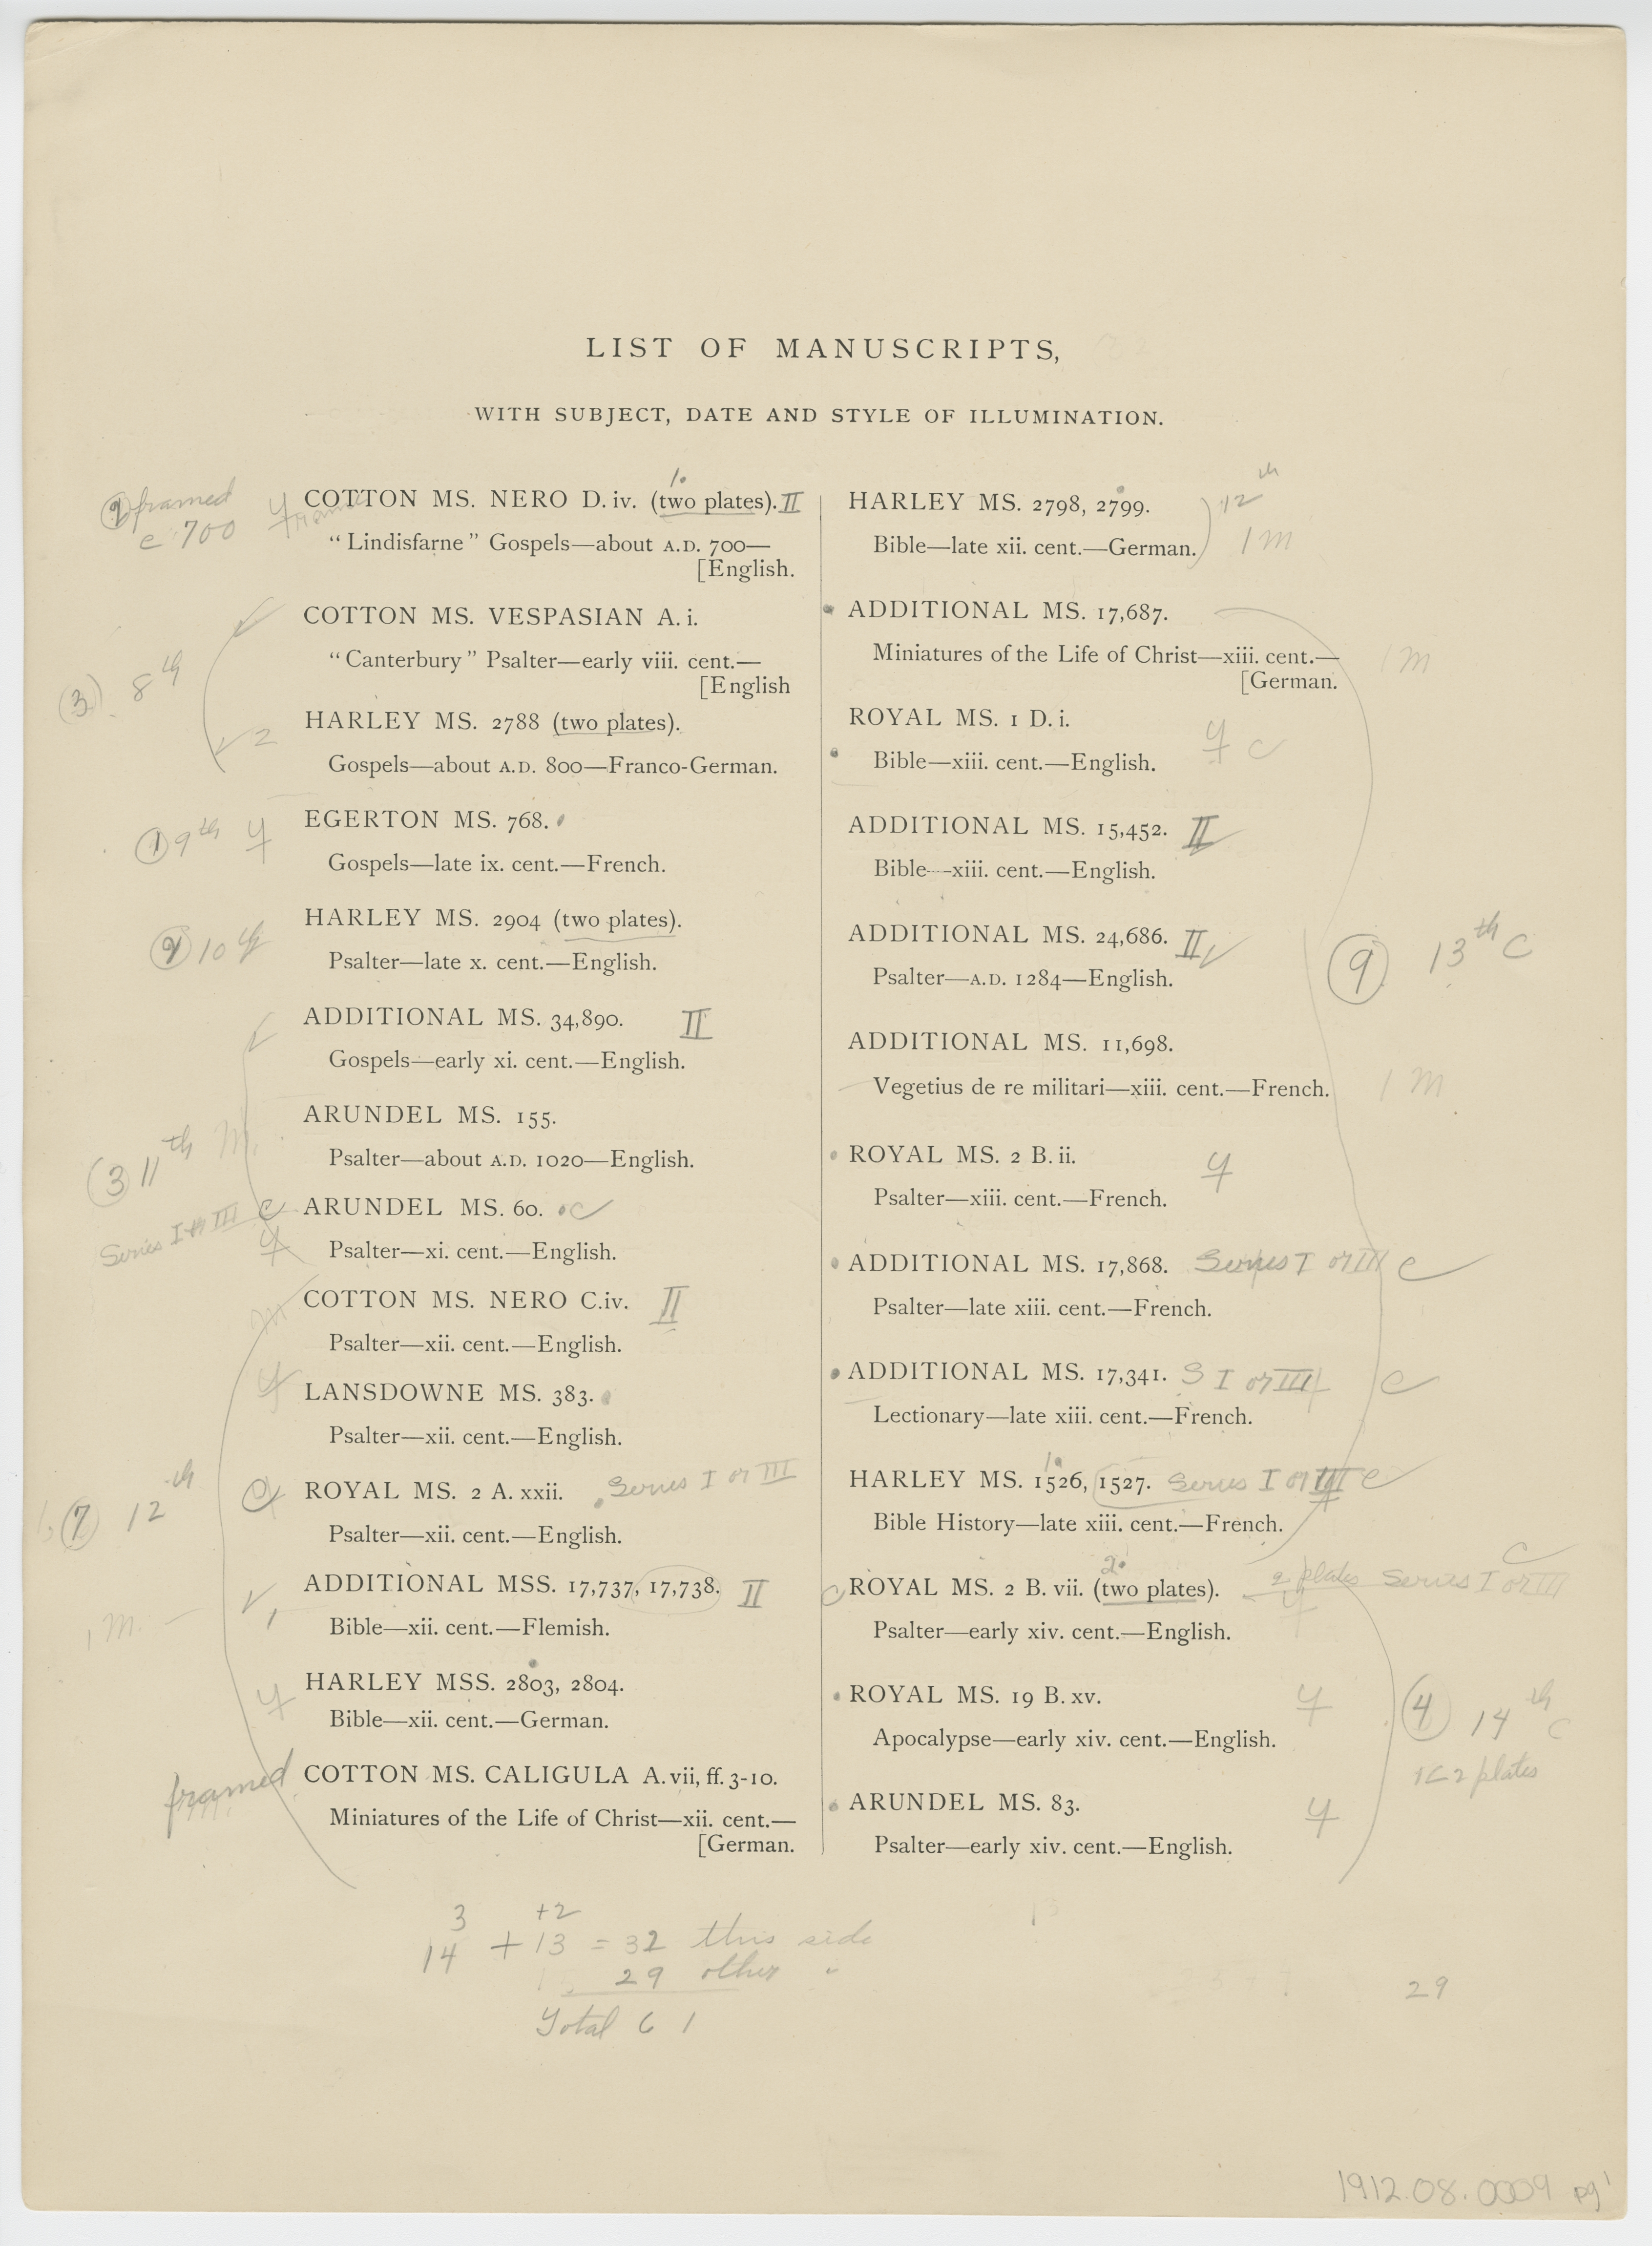 LIST OF MANUSCRIPTS,
WITH SUBJECT, DATE AND STYLE OF ILLUMINATION.
1.
2 framed
c 700
COTTON MS. NERO D. iv. (two plates). II
“Lindisfarne” Gospels—about A.D. 700—
[English.
COTTON MS. VESPASIAN A. i.
“Canterbury” Psalter—early viii. cent.—
[English
(3) 8th
2
HARLEY MS. 2788 (two plates).
Gospels—about A.D. 800—Franco-German.
1 9th
EGERTON MS. 768.
Gospels—late ix. cent.—French.
10th
HARLEY MS. 2904 (two plates).
Psalter—late x. cent.—English.
ADDITIONAL MS. 34,890. II
Gospels—early xi. cent.—English.
3 11th M.
ARUNDEL MS. 155.
Psalter—about A.D. 1020—English.
Series I or III C
ARUNDEL MS. 60. C
Psalter—xi. cent.—English.
COTTON MS. NERO C.iv. II
Psalter—xii. cent.—English.
LANSDOWNE MS. 383.
Psalter—xii. cent.—English.
(7) 12th
ROYAL MS. 2 A. xxii. Series I or III
Psalter—xii. cent.—English.
1 M. — 1
ADDITIONAL MSS. 17,737, 17,738. II
Bible—xii. cent.—Flemish.
HARLEY MSS. 2803, 2804.
Bible—xii. cent.—German.
framed
COTTON MS. CALIGULA A. vii, ff. 3-10.
Miniatures of the Life of Christ—xii. cent.—
[German.
HARLEY MS. 2798, 2799.
12th
Bible—late xii. cent.—German.
1 M
ADDITIONAL MS. 17,687.
Miniatures of the Life of Christ—xiii. cent.—
[German.
1 M
ROYAL MS. 1 D. i.
Bible—xiii. cent.—English.
C
ADDITIONAL MS. 15,452. II
Bible—xiii. cent.—English.
ADDITIONAL MS. 24,686. II
Psalter—A.D. 1284—English.
9 13th C
ADDITIONAL MS. 11,698.
Vegetius de re militari—xiii. cent.—French.
1 M
ROYAL MS. 2 B. ii.
Psalter—xiii. cent.—French.
ADDITIONAL MS. 17,868. Series I or III C
Psalter—late xiii. cent.—French.
ADDITIONAL MS. 17,341. S I or III C
Lectionary—late xiii. cent.—French.
HARLEY MS. 1526, 1527. Series I or III C
Bible History—late xiii. cent.—French.
2
C ROYAL MS. 2 B. vii. (two plates). 2 plates Series I or III C
Psalter—early xiv. cent.—English.
ROYAL MS. 19 B. xv.
Apocalypse—early xiv. cent.—English.
4 14th C
2 plates
ARUNDEL MS. 83.
Psalter—early xiv. cent.—English.
3 +2
14 + 13 = 32 this side
29 other "
Total 61
29
1912.08.0009 pg 1